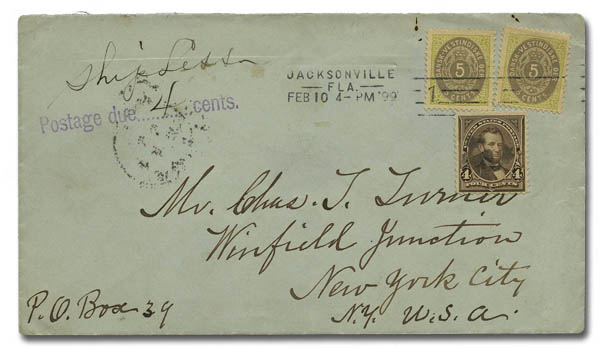 Ship Letter
JACKSONVILLE
FLA.
FEB 10 4-PM '99
1
Postage due 4 cents.
DANSK VESTINDISKE ØER
5
CENTS
DANSK VESTINDISKE ØER
5
CENTS
4 4
FOUR CENTS
Mr. Chas. T. Turner
Winfield Junction
New York City
N.Y. U.S.A.
P.O. Box 39